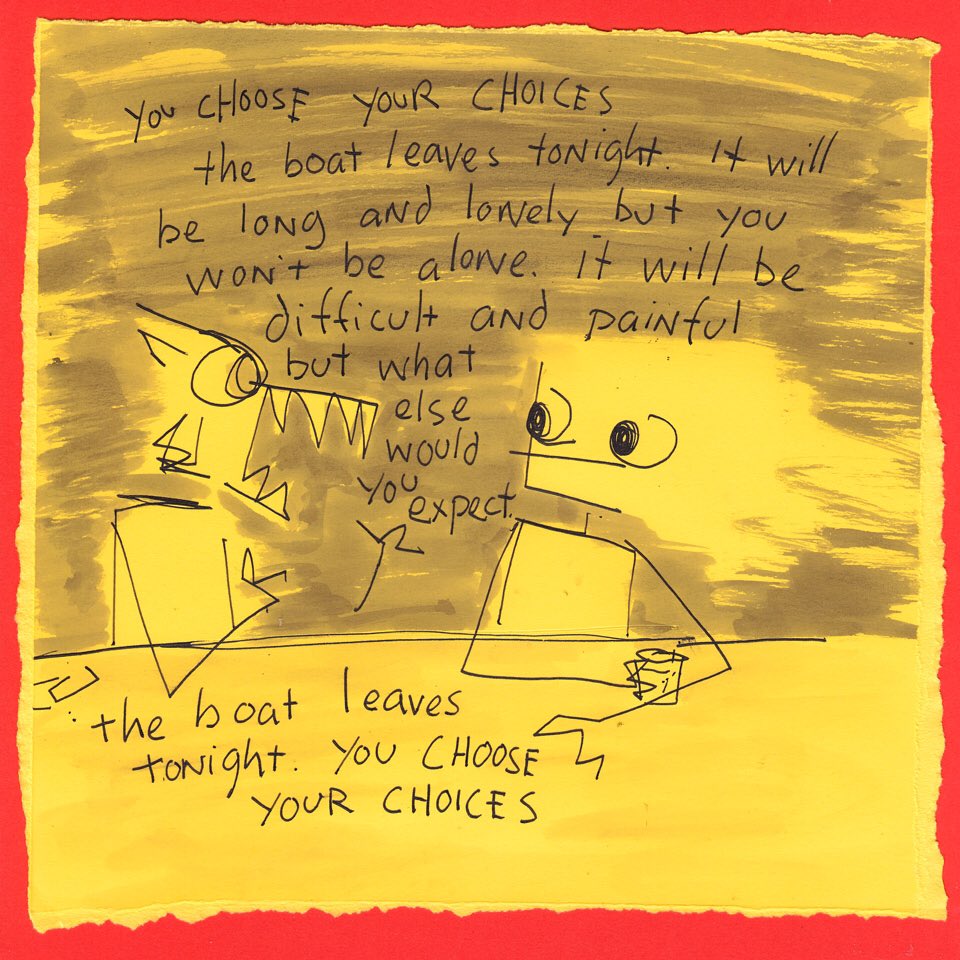 You CHOOSE YOUR CHOICES
the boat leaves tonight. It will
be long and lonely but you
won't be alone. it will be
difficult and painful
but what
else
would
you
expect.
the boat leaves
tonight. You CHOOSE
YOUR CHOICES